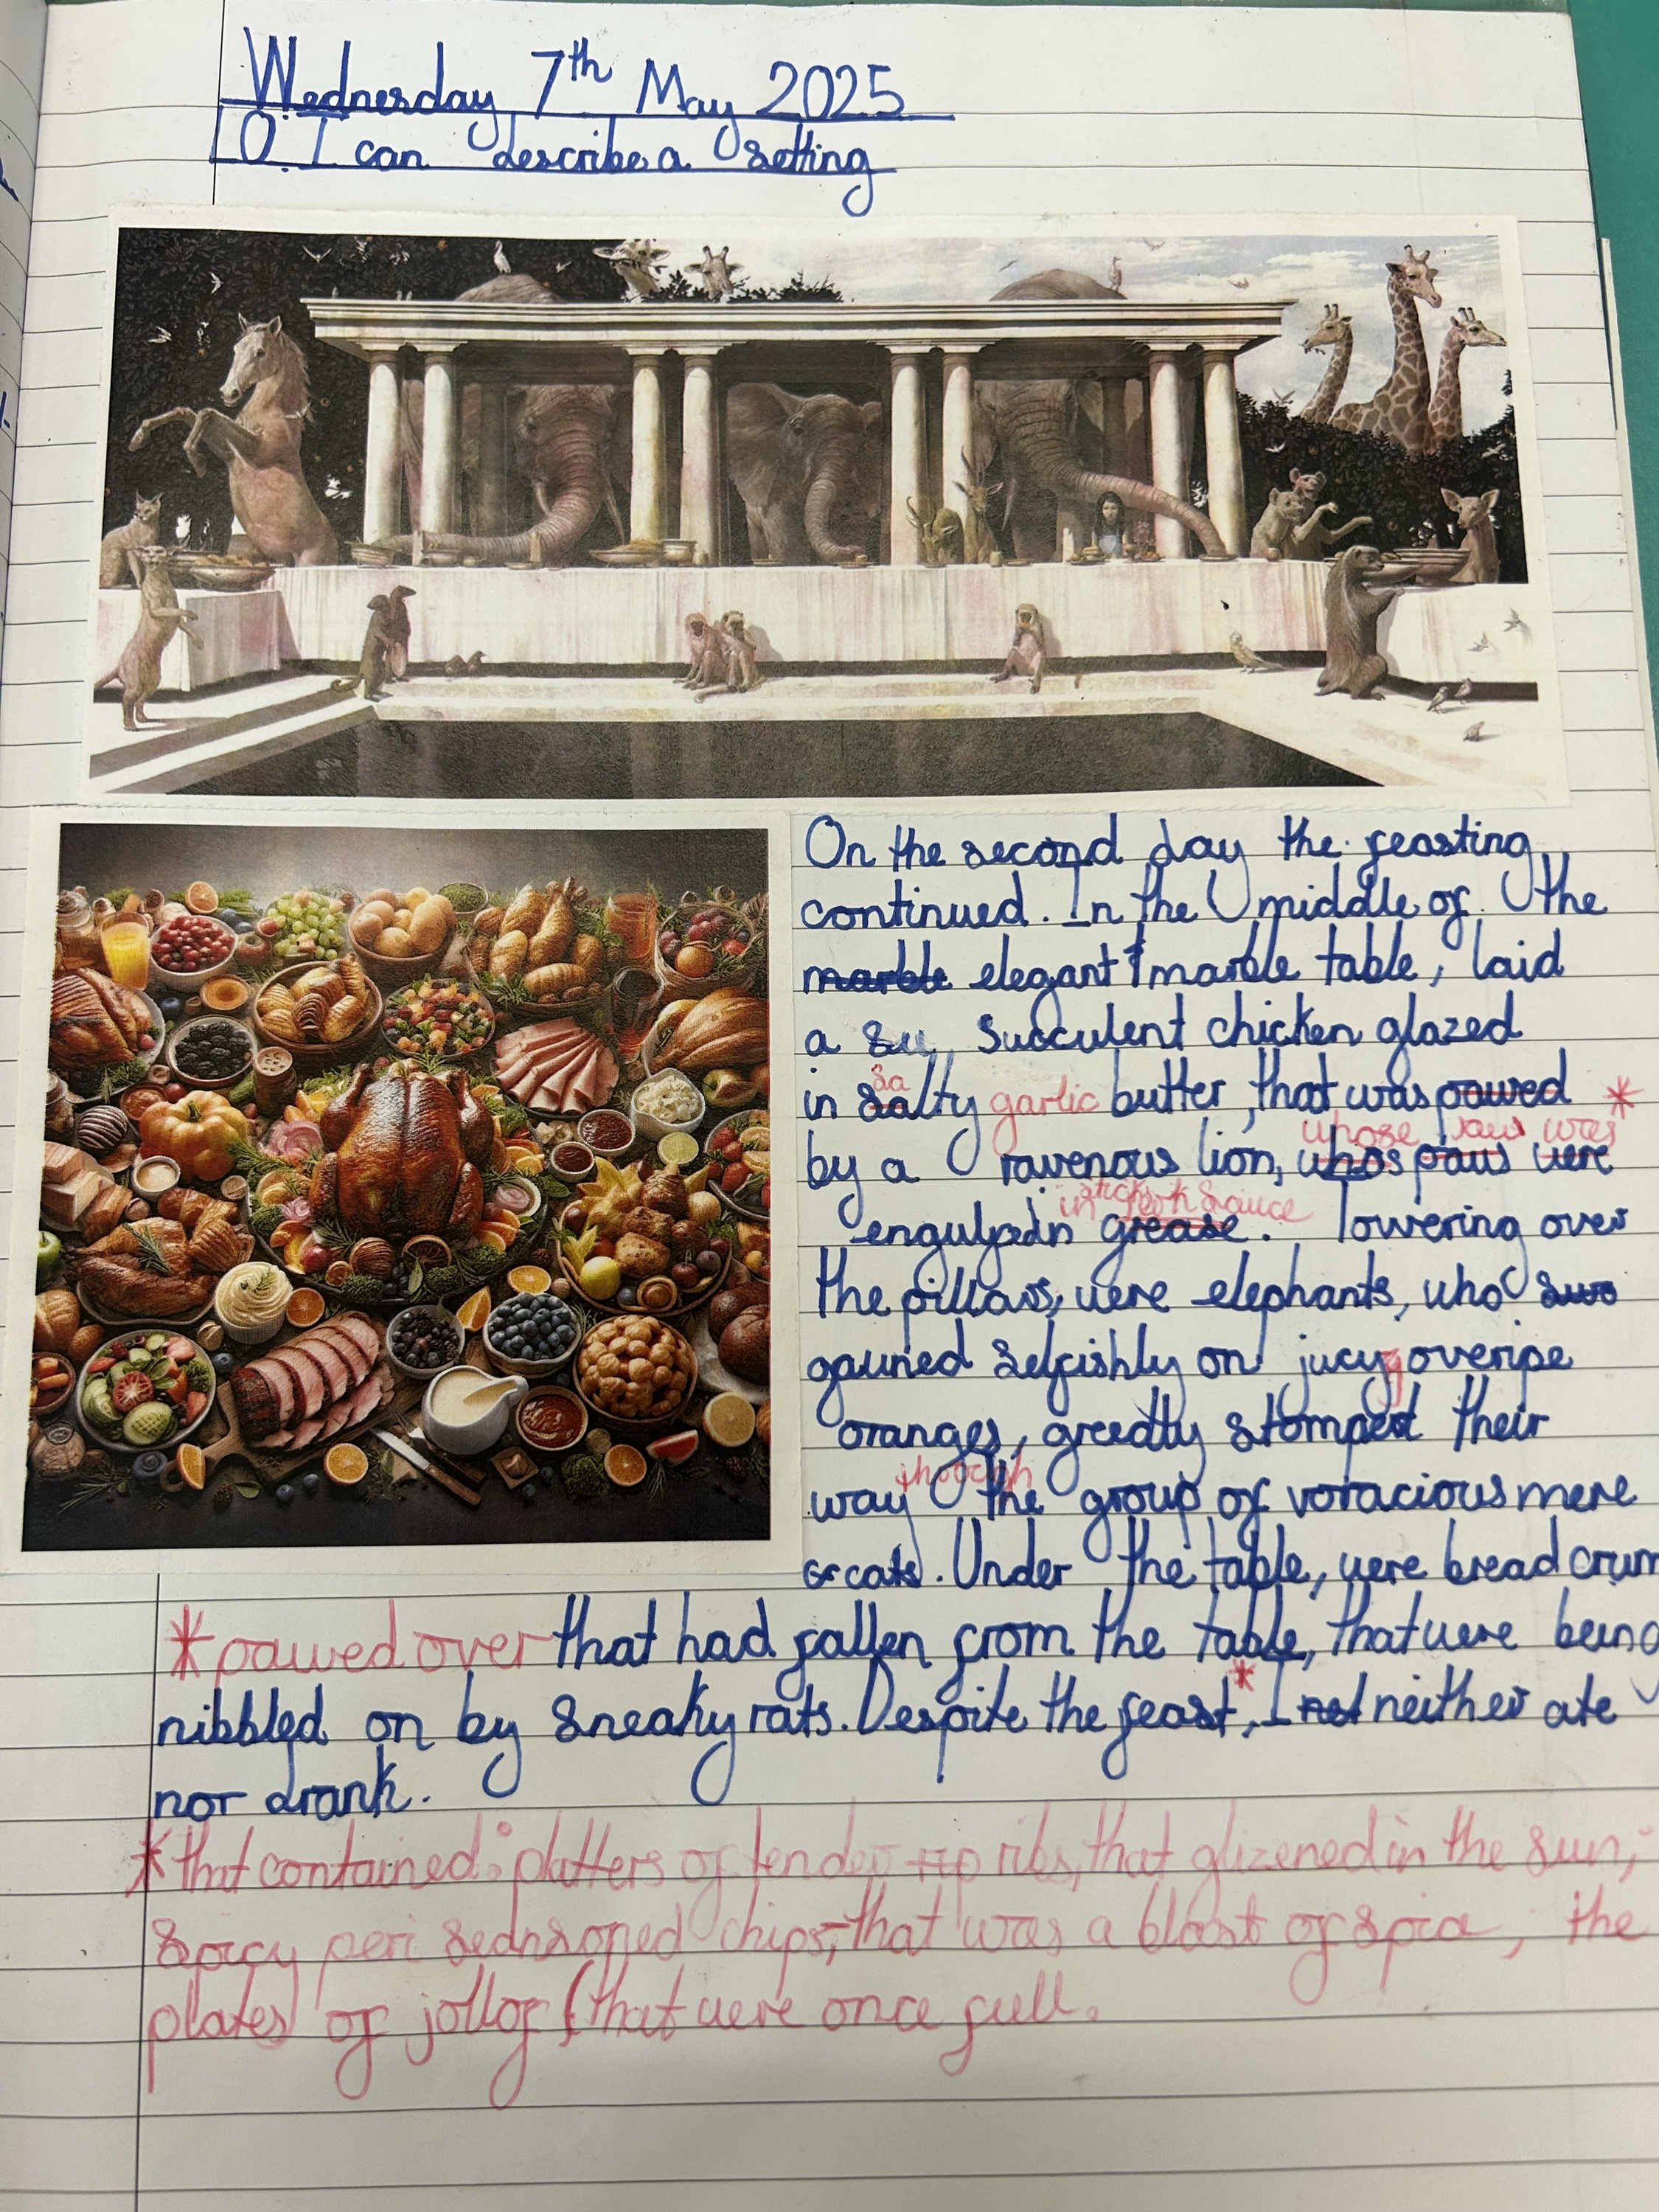 Wednesday 7th May 2025
O. I can describe a setting
On the second day the feasting
continued. In the middle of the
marble elegant marble table, laid
a su, succulent chicken glazed
sa
in salty garlic butter, that was pawed *
whose paw was
by a ravenous lion, whos paws were
in sauce
engulfed in grease. Towering over
the pillars, were elephants, who
gauned selfishly on jucy overipe
oranges, greedly stomped their
through
way the group of voracious mere
cats. Under the table, were bread crum
*pawed over that had fallen from the table, that were being
*
nibbled on by sneaky rats. Despite the feast, I not neither ate
nor drank.
*that contained: platters of tender ribs, that glizened in the sun;
Spicy peri seansoned chips, that was a blast of spice; the
plates of jollof (that were once full.